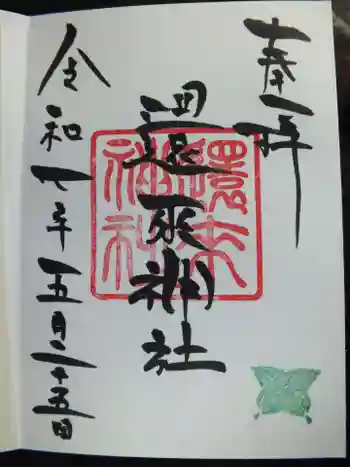 奉拝
還來神社
還来
神社
令和七年五月二十五日